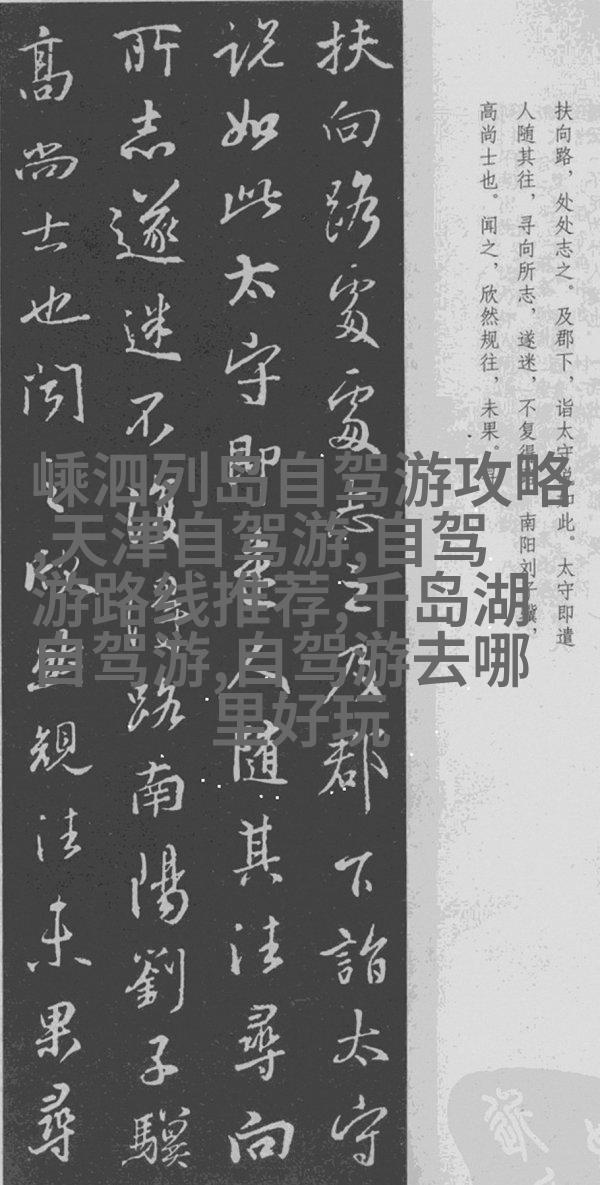 扶向路，处处志之。及郡下，诣太守说如此。太守即遣
人随其往，寻向所志，遂迷，不复得路。南阳刘子骥，
高尚士也。闻之，欣然规往，未果。寻
扶向路處處志之及郡下詣太守
說如此太守即遣人隨其往尋向
所志遂迷不復得路南陽劉子驥
高尚士也聞之欣然規往未果尋
嵊泗列岛自驾游攻略
天津自驾游,自驾
游路线推荐,千岛湖
自驾游,自驾游去哪
里好玩